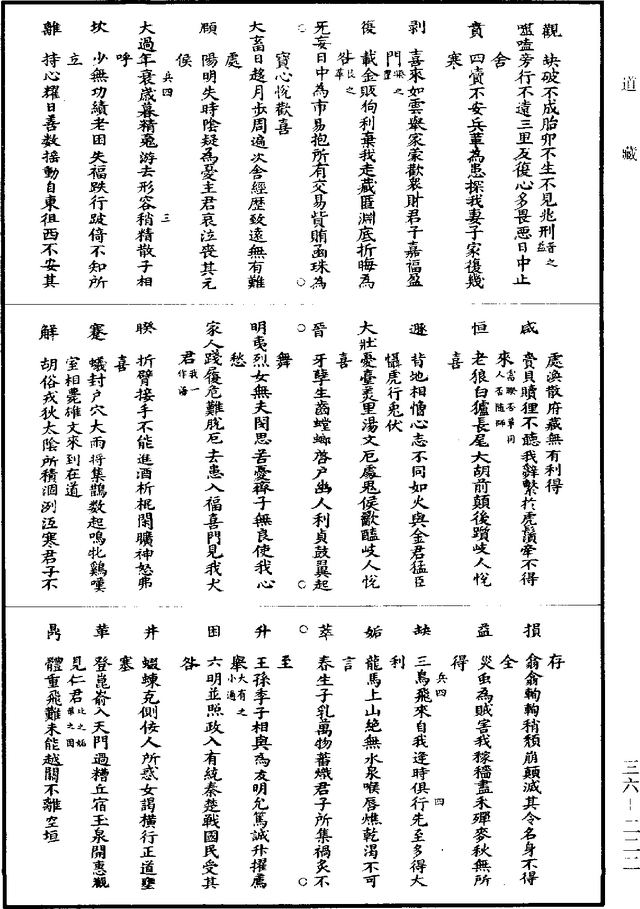 道藏
三六–二二二
觀 缺破不成胎卵不生不見兆刑晉之益
噬嗑旁行不遠三里反復心多畏惡日中止
舍
賁 四賣不安兵革為患掠我妻子家復幾
寒
剥 喜來如雲舉家蒙歡衆財君子嘉福盈
門渙之豐
復 載金販狗利棄我走藏匿淵底折晦為
咎艮之革
无妄日中為市易抱所有交易貲賄函珠為
寳心悅歡喜
大畜日趨月步周遍次舍經歷致遠無有難
處
頤 陽明失時陰疑為憂主君哀泣喪其元
侯
兵四 三
大過年衰歲暮精䰟游去形容稍精散子相
呼
坎 少無功績老困失福跌行跛倚不知所
立
離 持心耀日善数搖動自東徂西不安其
處渙散府藏無有利得
咸 賫貝贖狸不聽我辭繫於虎鬚牽不得
來需睽否革同人否隨師
恒 老狼白獹長尾大胡前顛後躓岐人悅
喜
遯 背地相憎心志不同如火與金君猛臣
懾虎行兎伏
大壯憂臺羑里湯文厄處鬼侯歠醢岐人悅
喜
晉 牙孽生齒螳螂啓户幽人利貞鼓翼起
舞
明夷烈女無夫閔思苦憂齊子無良使我心
愁
家人踐履危難脫厄去患入福喜門見我大
君我一作海
睽 折臂接手不能進酒祈祀閑曠神怒弗
喜
蹇 蟻封户穴大雨將集鵲数起鳴牝雞嘆
室相甍雄文來到在道
解 胡俗戎狄太陰所積涸冽沍寒君子不
存
損 翕翕軥軥稍頹崩顛滅其令名身不得
全
益 災虫為賊害我稼穡盡禾殫麥秋無所
得
兵四 四
缺 三鳥飛來自我逢時俱行先至多得大
利
姤 龍馬上山絶無水泉喉唇燋乾渴不可
言
萃 春生子乳萬物蕃熾君子所集禍災不
至
升 王孫季子相與為友明允篤誠升擢薦
舉大有之小過
困 六明並照政入有統秦楚戰國民受其
咎
井 蝃蝀充側佞人所惑女謁横行正道壅
塞
革 登崑崙入天門過糟丘宿玉泉開惠觀
見仁君比之姤萃之困
鼎 體重飛難未能越關不離空垣